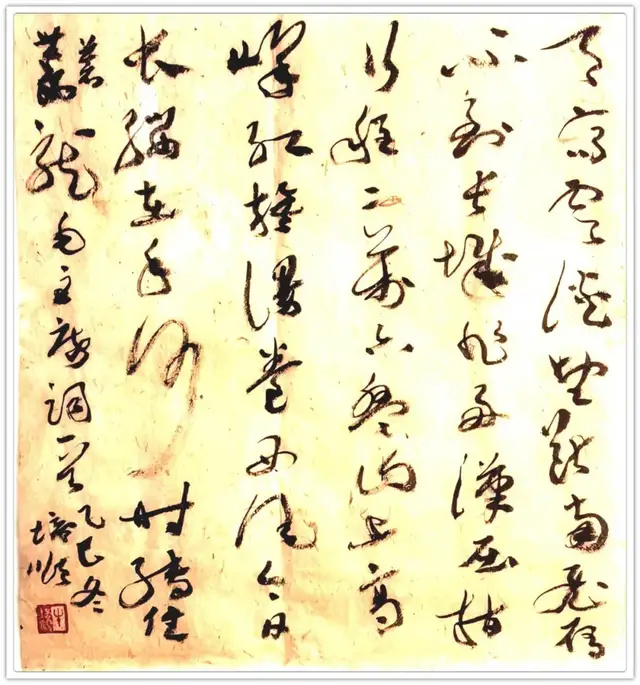 天高雲淡望断南飛雁
不到长城非好漢屈指
行程二萬六盘山上高
峰红旗漫卷西风今日
长缨在手何时缚住
苍龍毛主席词一首
乙巳冬
培顺